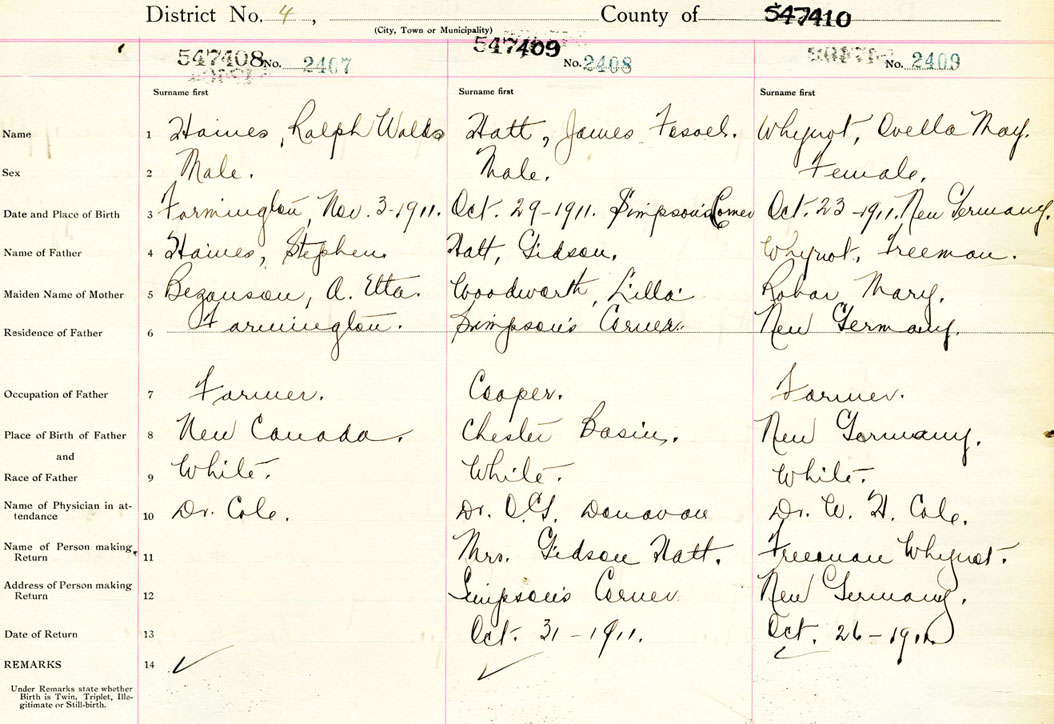 District No. 4, County of 547410
(City, Town or Municipality)
547408 No. 2407 547409 No. 2408 No. 2409
Surname first Surname first Surname first
Name 1 Haines, Ralph Waldo Hatt, James Whynot, Ovella May.
Sex 2 Male. Male. Female.
Date and Place of Birth 3 Farmington, Nov. 3-1911. Oct. 29-1911. Simpson's Corner Oct. 23-1911. New Germany.
Name of Father 4 Haines, Stephen. Hatt, Gidson. Whynot, Freeman.
Maiden Name of Mother 5 Bezanson, A. Etta. Woodworth, Lilla Robar Mary.
Residence of Father 6 Farmington. Simpson's Corner. New Germany.
Occupation of Father 7 Farmer. Cooper. Farmer.
Place of Birth of Father 8 New Canada. Chester Basin. New Germany.
and
Race of Father 9 White. White. White.
Name of Physician in at-
tendance 10 Dr. Cole. Dr. O.G. Donovan Dr. W. H. Cole.
Name of Person making
Return 11 Mrs. Gidson Hatt. Freeman Whynot.
Address of Person making
Return 12 Simpson's Corner New Germany.
Date of Return 13 Oct. 31-1911. Oct. 26-1911
REMARKS 14
Under Remarks state whether
Birth is Twin, Triplet, Ille-
gitimate or Still-birth.